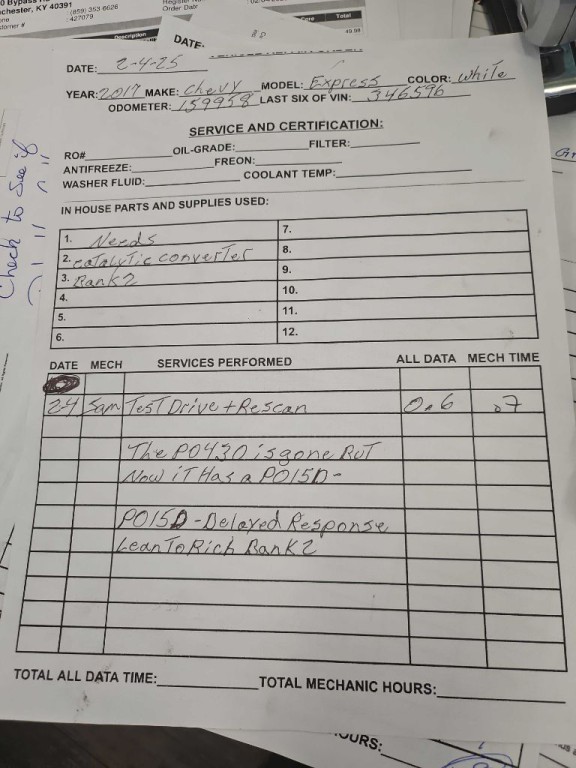 chester, KY 40391
(859) 353-6626
427079
Description
Total
49.98
DATE:
DATE: 2-4-25
YEAR: 2017 MAKE: Chevy MODEL: Express COLOR: White
ODOMETER: 159958 LAST SIX OF VIN: 346596
SERVICE AND CERTIFICATION:
RO# OIL-GRADE: FILTER:
ANTIFREEZE: FREON:
WASHER FLUID: COOLANT TEMP:
Check to See if
IN HOUSE PARTS AND SUPPLIES USED:
1. Needs 7.
2. catalytic converter 8.
3. Bank 2 9.
4. 10.
5. 11.
6. 12.
DATE MECH SERVICES PERFORMED ALL DATA MECH TIME
2-4 Sam Test Drive + Rescan 0.6 .7
The P0430 is gone But
Now iT Has a P015D-
P015D - Delayed Response
Lean To Rich Bank 2
TOTAL ALL DATA TIME: TOTAL MECHANIC HOURS:
OURS: